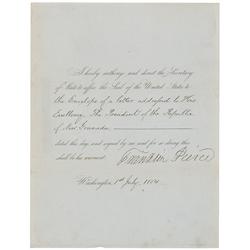 I hereby authorize and direct the Secretary
of State to affix the Seal of the United States to
the Envelope of a letter addressed to His
Excellency The President of the Republic
of New Granada
dated this day and signed by me and for so doing this
shall be his warrant.
Franklin Pierce
Washington, 1st July, 1854